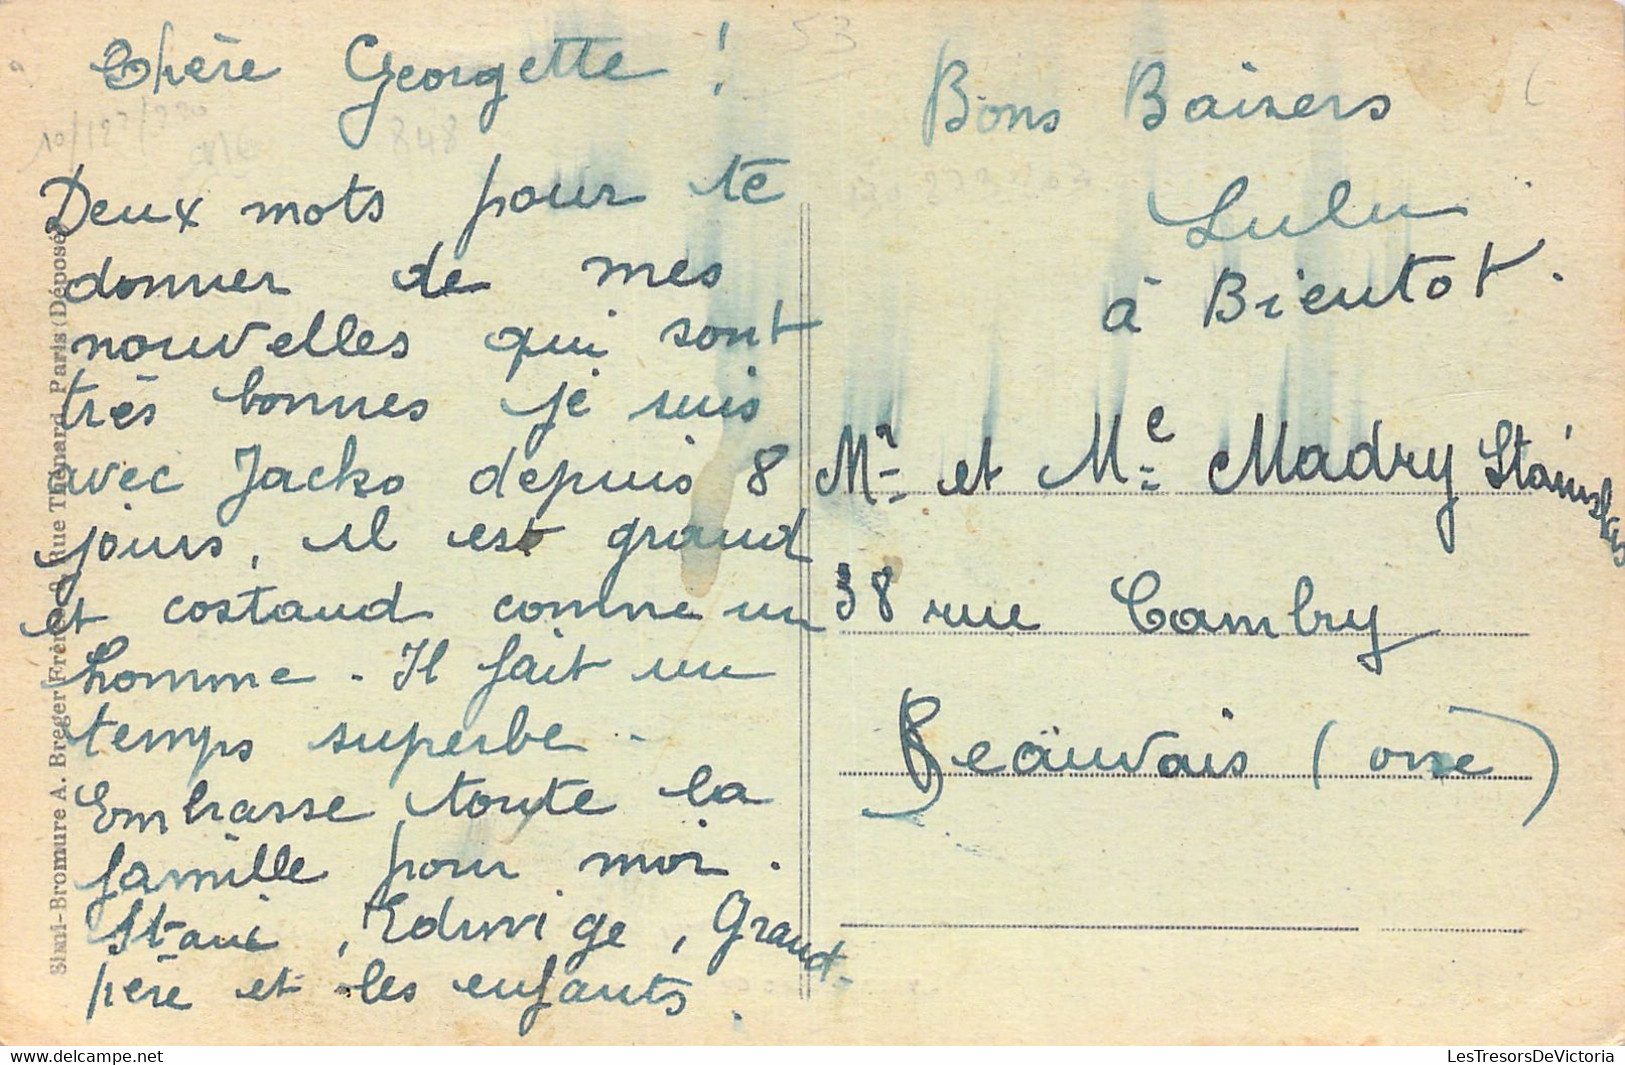 Chère Georgette !
Deux mots pour te
donner de mes
nouvelles qui sont
très bonnes je suis
avec Jacko depuis 8
jours, il est grand
et costaud comme un
homme. Il fait un
temps superbe.
Embrasse toute la
famille pour moi.
Stani, Edwige, Grand-
père et les enfants.
Bons Baisers
Lulu
à Bientot.
Mr et Me Madry Stanislas
38 rue Cambry
Beauvais (oise)
Simi-Bromure A. Breger Frères, 9, Rue Thénard, Paris (Déposé)
848
53
LesTresorsDeVictoria